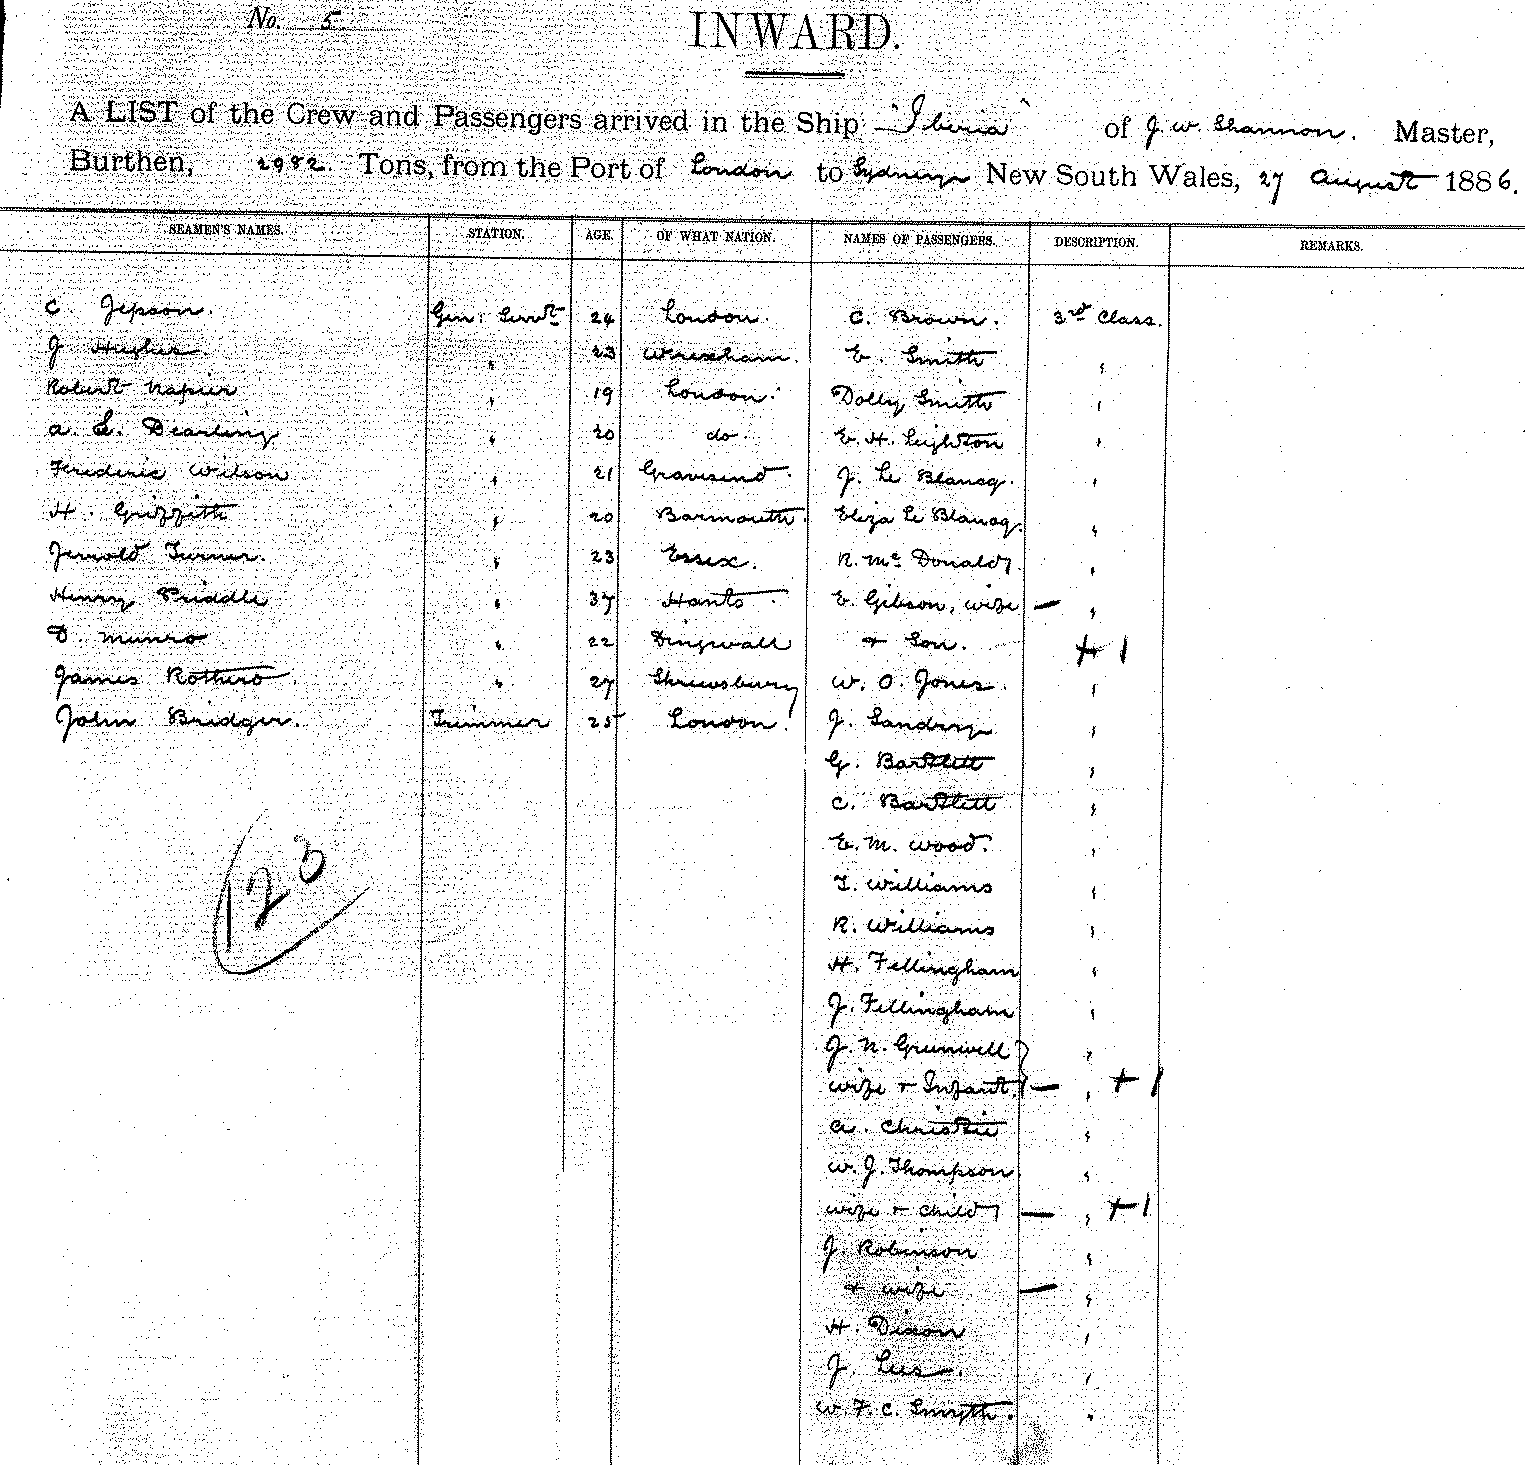 No. 5.
INWARD.
A LIST of the Crew and Passengers arrived in the Ship "Iberia" of J. W. Shannon. Master,
Burthen, 2982. Tons, from the Port of London to Sydney New South Wales, 27 August 1886.
SEAMEN'S NAMES. STATION. AGE. OF WHAT NATION. NAMES OF PASSENGERS. DESCRIPTION. REMARKS.
C. Jepson. Gen. Servt 24 London. C. Brown. 3rd Class.
J Hughes. " 23 Wrexham. E. Smith "
Robert Napier " 19 London. Dolly Smith "
A. E. Dearling " 20 do. E. H. Leighton "
Frederic Wilson " 21 Gravesend. J. Le Blancq. "
H. Griffith " 20 Barmouth. Eliza Le Blancq. "
Jerrold Turner. " 23 Essex. R. Mc Donald. "
Henry Priddle " 37 Hants. E. Gibson, wife — "
D. Munro " 22 Dingwall + Son. + 1
James Rothero. " 27 Shrewsbury W. O. Jones. "
John Bridger. Trimmer 25 London. J. Landry "
G. Bartlett "
C. Bartlett "
E. M. Wood. "
T. Williams "
R. Williams "
H. Fillingham "
J. Fillingham "
J. N. Grunwell "
wife + Infant. — " + 1
A. Christie "
W. J. Thompson "
wife + child — " + 1
J. Robinson "
+ wife — "
H. Dixon "
J. Lees. "
W. F. C. Smyth. "